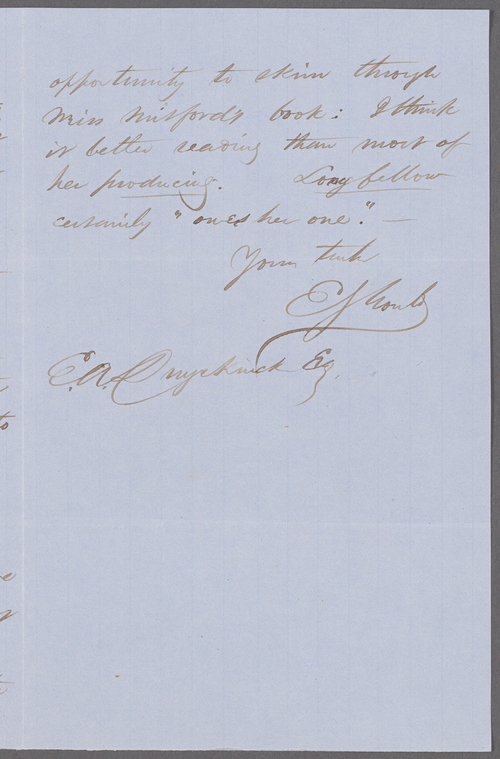 opportunity to skim through
Miss Mitford's book: I think
it better reading than most of
her producing. Longfellow
certainly "owes her one." —
Yours truly
E A Duyckinck Esq.